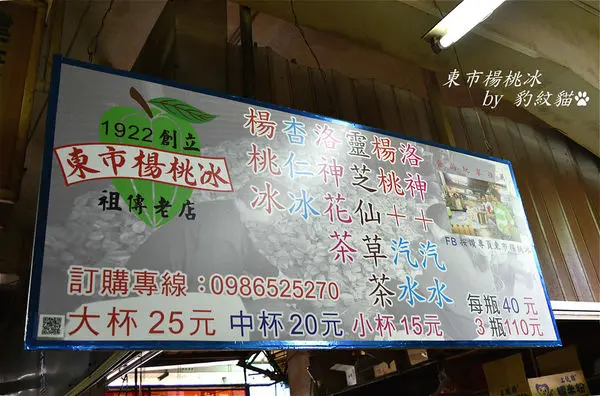 東市楊桃冰
by 豹紋貓
1922創立
東市楊桃冰
祖傳老店
楊桃冰
杏仁冰
洛神花茶
靈芝仙草茶
楊桃+汽水
洛神+汽水
FB按讚專頁東市楊桃冰
訂購專線:0986525270
每瓶40元
3瓶110元
大杯25元 中杯20元 小杯15元